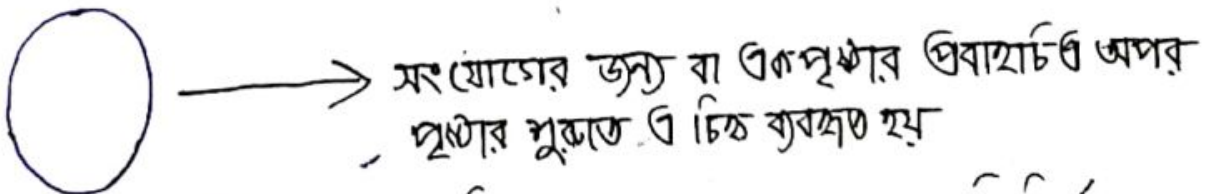 সংযোগের জন্য বা একপৃষ্ঠার প্রবাহচিত্র অপর
পৃষ্ঠার শুরুতে এ চিহ্ন ব্যবহৃত হয়